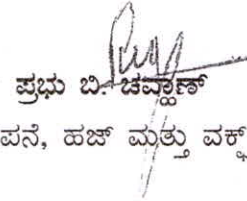 ಪ್ರಭು ಬಿ. ಚವ್ಹಾಣ್
ಪನೆ, ಹಜ್ ಮತ್ತು ವಕ್ಫ್